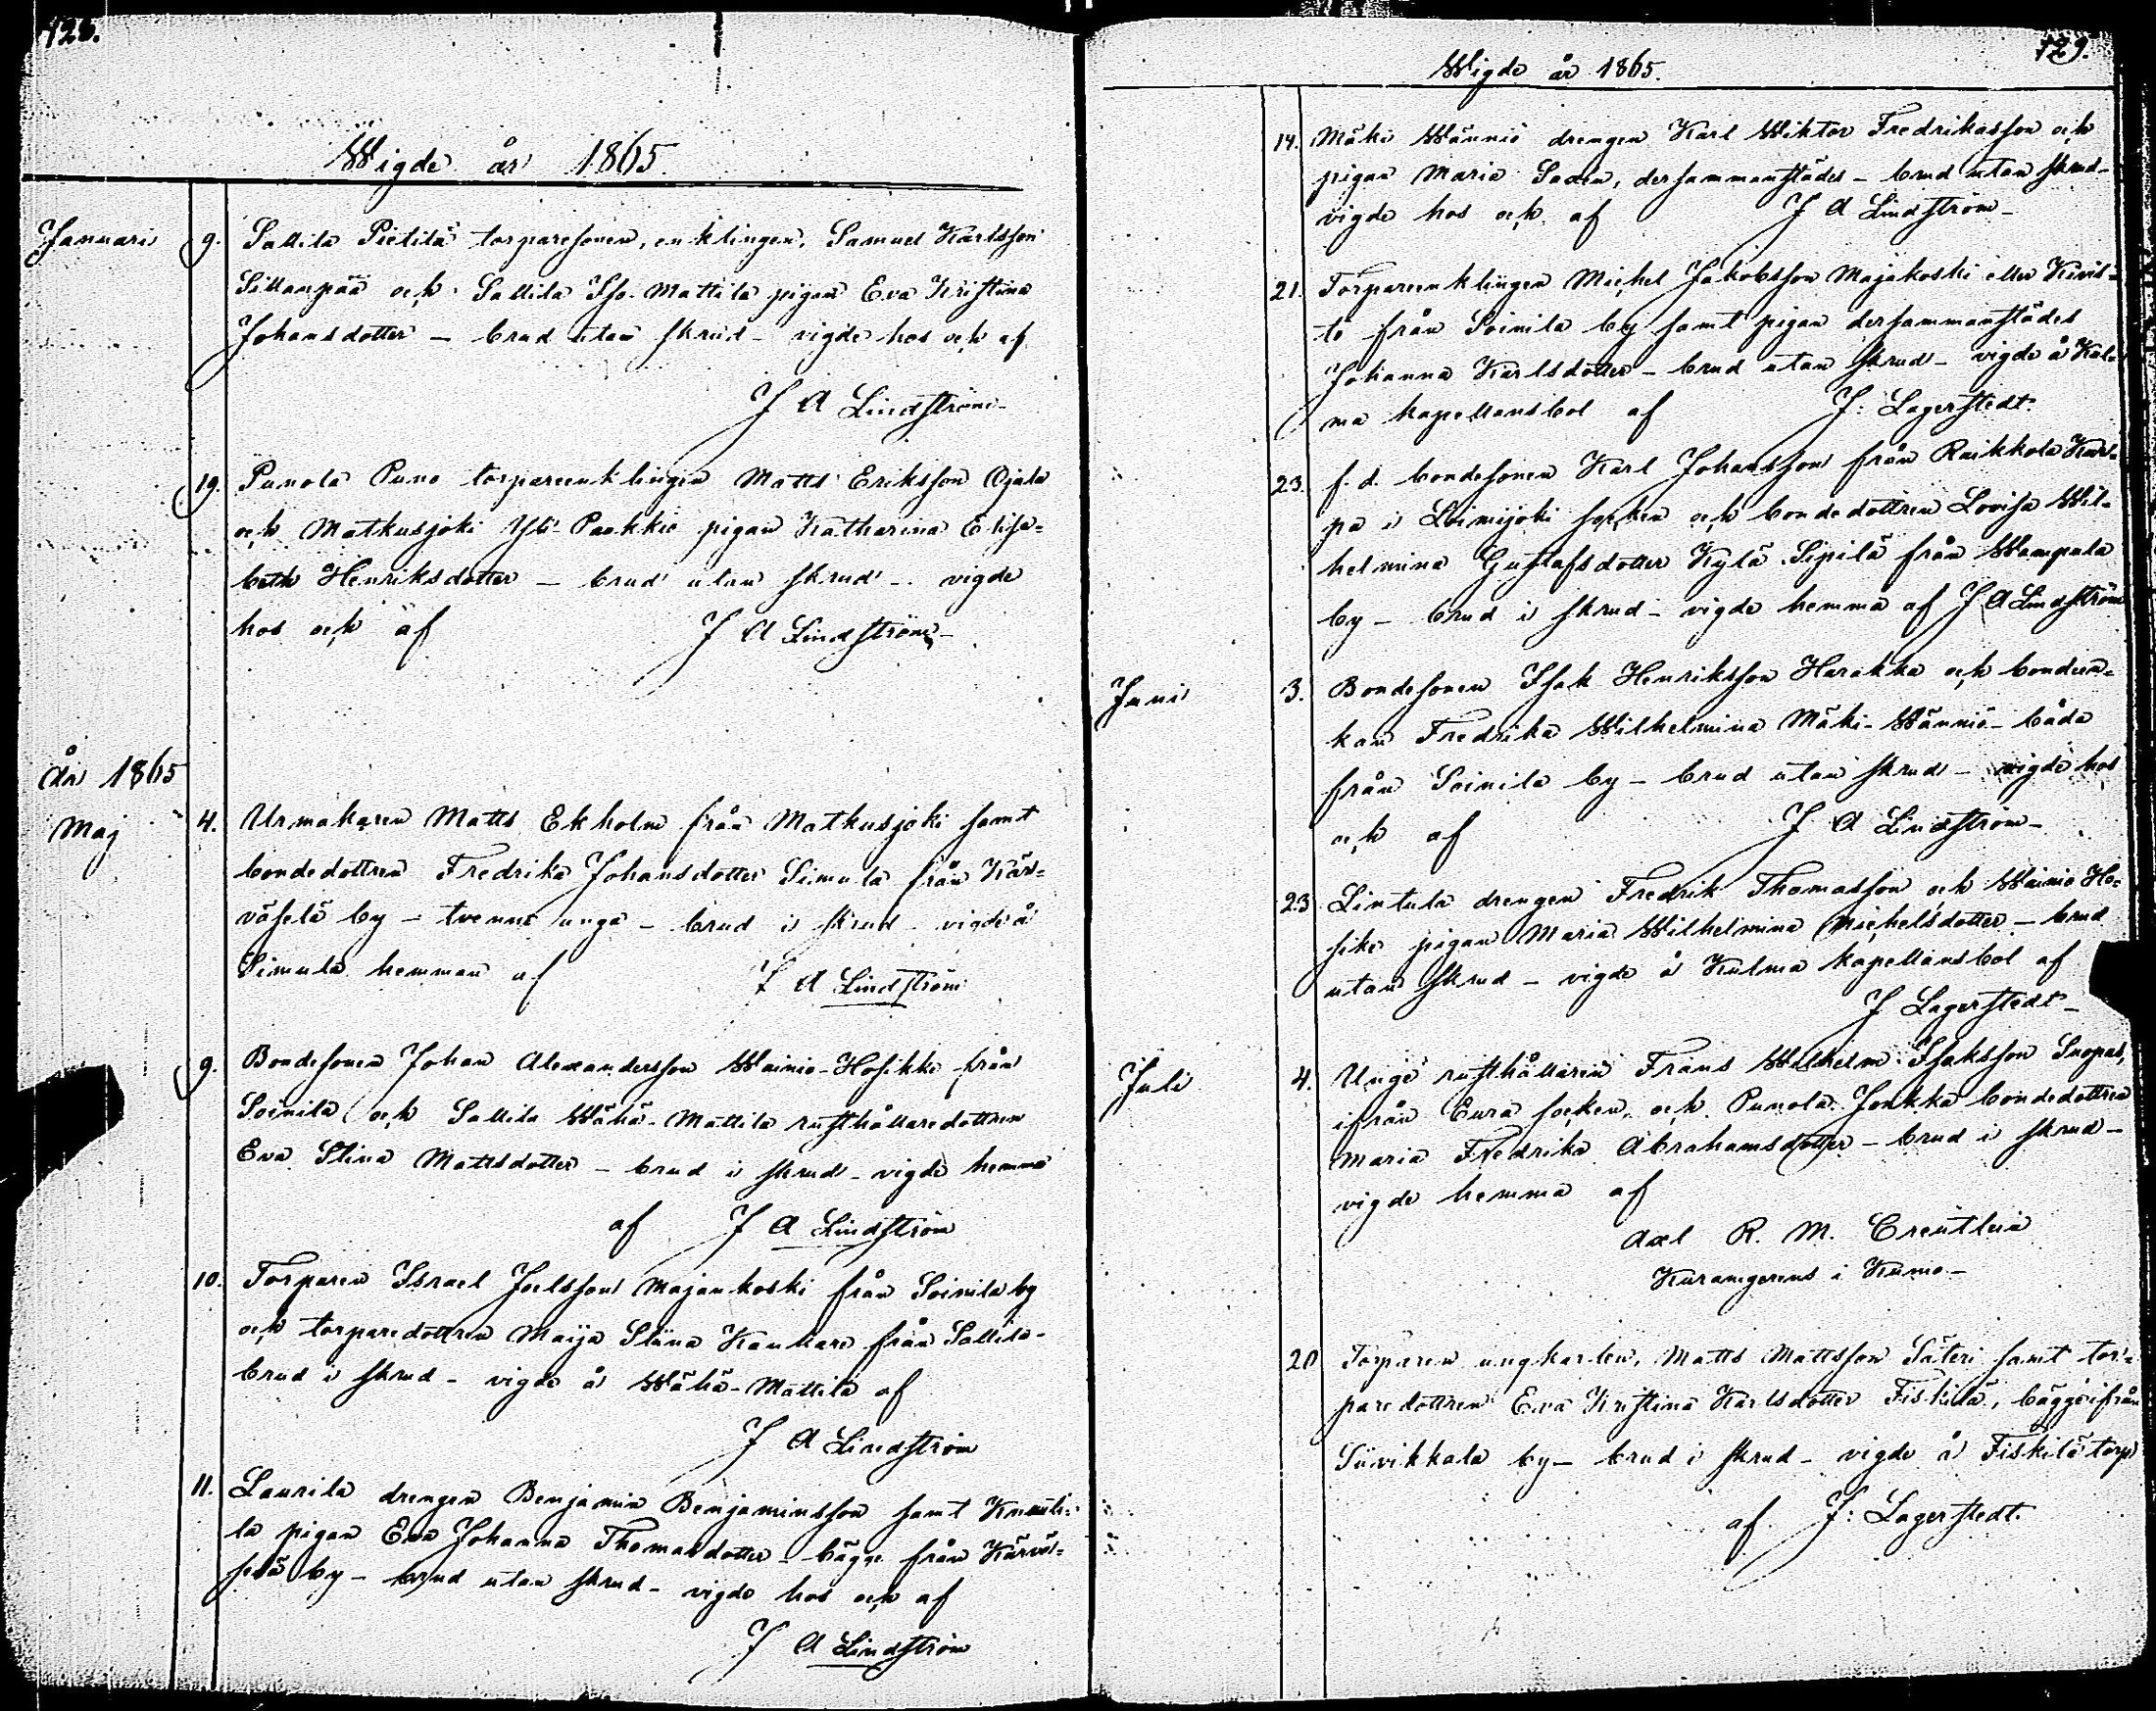 128.
Wigde år 1865.
Januari 9. Sallila Pietilä torparesonen, enklingen, Samuel Karlsson
Sillanpää och Sallila Iso-Mattila pigan Eva Kristina
Johansdotter – brud utan skrud – vigde hos och af
J A Lindström –
19. Punola Puno torpareenklingen Matts Eriksson Ojala
och Matkusjoki Yli-Paakkio pigan Katharina Elisa=
beth Henriksdotter – brud utan skrud – vigde
hos och af J A Lindström –
År 1865
Maj 4. Urmakaren Matts Ekholm från Matkusjoki samt
bondedottren Fredrika Johansdotter Simula från Kär=
väselä by – tvenne unga – brud i skrud – vigde å
Simula hemman af J A Lindström
9. Bondesonen Johan Alexandersson Wainio-Hosikki från
Soinila och Sallila Wähä-Mattila rusthållaredottren
Eva Stina Mattsdotter – brud i skrud – vigde hemma
af J A Lindström
10. Torparen Israel Joelsson Majankoski från Soinila by
och torparedottren Maija Stina Kankare från Sallila –
brud i skrud – vigde å Wähä-Mattila af
J A Lindström
11. Laurila drengen Benjamin Benjaminsson samt Knuuti=
la pigan Eva Johanna Thomasdotter – bägge från Kärvä=
selä by – brud utan skrud – vigde hos och af
J A Lindström
129.
Wigde år 1865.
14. Mäki Wänniö drengen Karl Wiktor Fredriksson och
pigan Maria Saxén, dersammanstädes – brud utan skrud –
vigde hos och af J A Lindström –
21. Torpareenklingen Michel Jakobsson Majakoski eller Kivis=
tö från Soinila by samt pigan dersammanstädes
Johanna Karlsdotter – brud utan skrud – vigde å Kul=
ma kapellansbol af J: Lagerstedt.
23. f. d. bondesonen Karl Johansson från Raikkola Kar=
pa i Loimijoki socken och bondedottren Lovisa Wil=
helmina Gustafsdotter Kylä Sipilä från Wampula
by – brud i skrud – vigde hemma af J A Lindström
Juni 3. Bondesonen Isak Henriksson Harakka och bondeen=
kan Fredrika Wilhelmina Mäki-Wänniö – båda
från Soinila by – brud utan skrud – vigde hos
och af J A Lindström –
23 Lintula drengen Fredrik Thomasson och Wainio Ho=
sike pigan Maria Wilhelmina Michelsdotter – brud
utan skrud – vigde å Kulma kapellansbol af
J Lagerstedt –
Juli 4. Unge rusthållaren Frans Wilhelm Isaksson Snopas,
ifrån Eura socken, och Punola Jonkka bondedottren
Maria Fredrika Abrahamsdotter – brud i skrud –
vigde hemma af
Axel R. M. Creutlein
i Kumo –
20 Torparen ungkarlen, Matts Mattsson Säteri samt tor=
paredottren Eva Kristina Karlsdotter Fiskilä, bägge ifrån
Sievikkala by – brud i skrud – vigde å Fiskilä torp
af J: Lagerstedt.